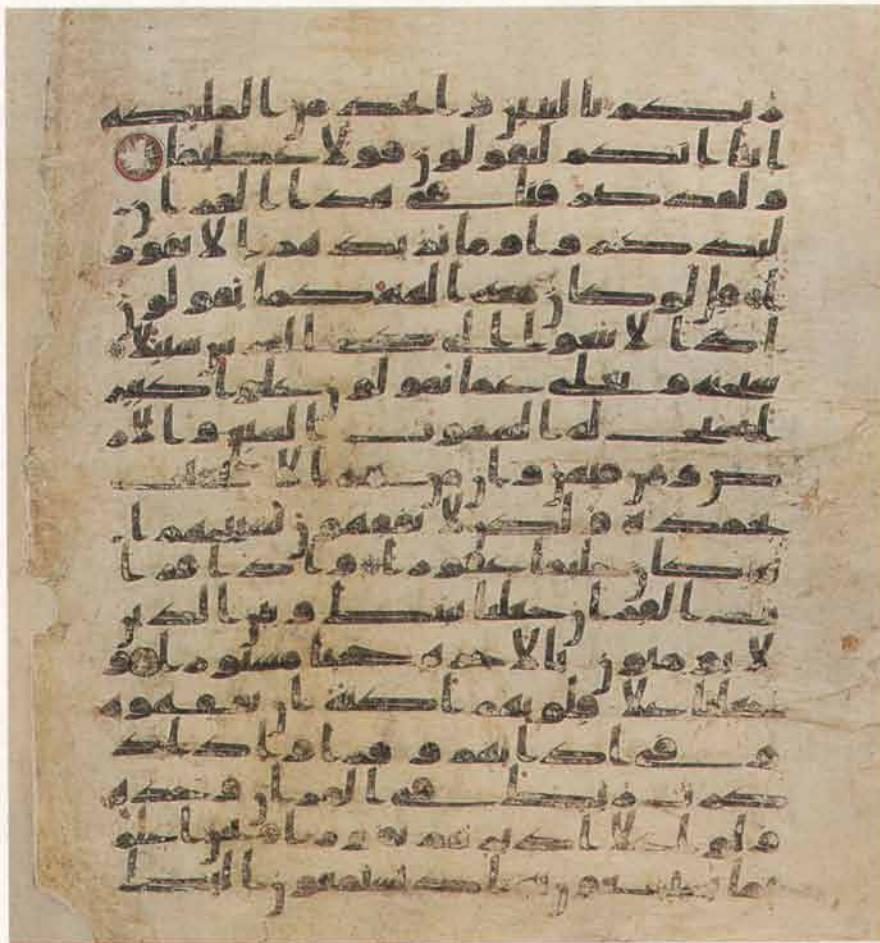 ر بكم بالبنين واتخذ من الملئكة
انثا انكم لتقولون قولا عظيما
ولقد صرفنا في هذا القران
ليذكروا وما يزيدهم الا نفور
ا قل لو كان معه الهة كما يقولون
اذا لابتغوا الى ذي العرش سبيلا
سبحنه وتعلى عما يقولون علوا كبير
ا تسبح له السموت السبع والار
ض ومن فيهن وان من شي الا يسبح
بحمده ولكن لا تفقهون تسبيحهم ا
نه كان حليما غفورا واذا قرا
ت القران جعلنا بينك وبين الذين
لا يومنون بالاخرة حجابا مستورا و
جعلنا علا قلوبهم اكنة ان يفقهوه
وفي اذانهم وقرا واذا ذ
كرت ربك في القران وحده
ولوا علا ادبرهم نفورا نحن اعلم
بما يستمعون به اذ يستمعون اليك